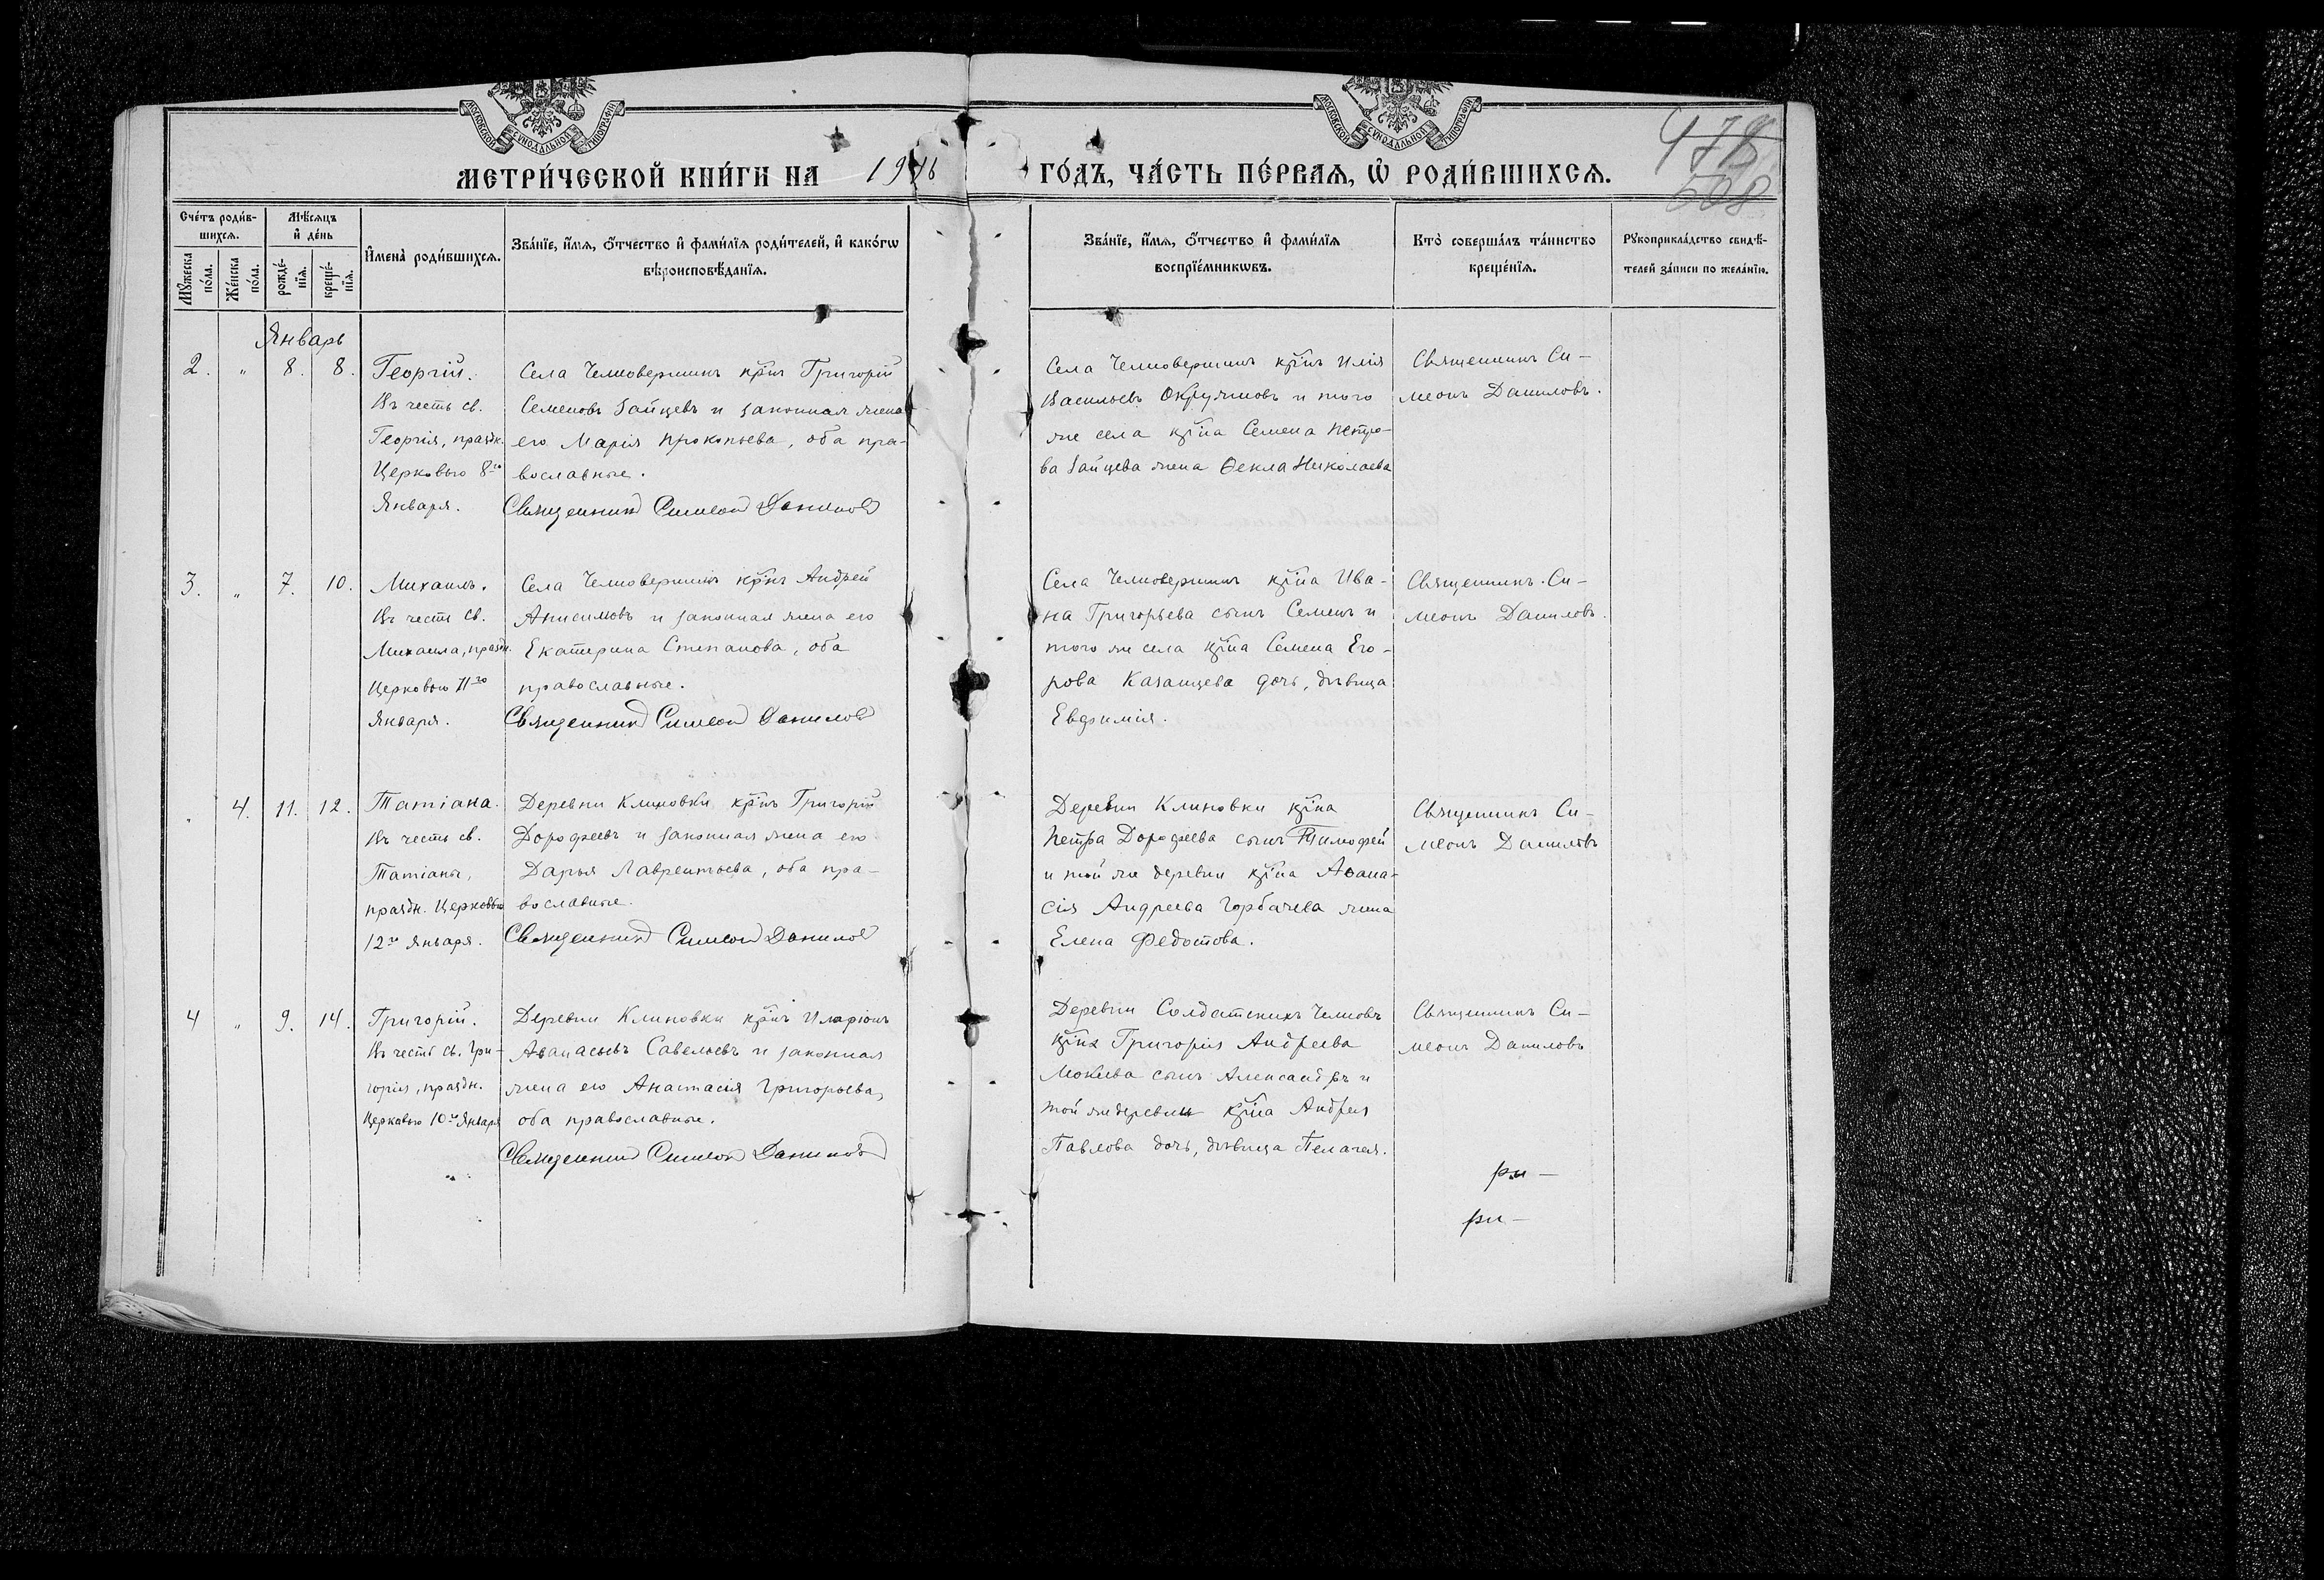 МОСКОВСКОЙ СѴНОДАЛЬНОЙ ТИПОГРАФІИ
МОСКОВСКОЙ СѴНОДАЛЬНОЙ ТИПОГРАФІИ
478
508
МЕТРИ́ЧЕСКОЙ КНИ́ГИ НА 1916 ГО́ДЪ, ЧА́СТЬ ПЕ́РВАѦ, Ѡ҆ РОДИ́ВШИХСѦ.
Сче́тъ роди́в-
шихсѧ.
Мѣ́сѧцъ
и҆ де́нь
Мꙋ́жеска по́ла.
Же́нска по́ла.
рожде́-
нїѧ.
креще́-
нїѧ.
И҆мена̀ роди́вшихсѧ.
Зва́нїе, и҆́мѧ, ѻ҆́тчество и҆ фами́лїѧ роди́телей, и҆ како́гѡ
вѣроисповѣ́данїѧ.
Зва́нїе, и҆́мѧ, ѻ҆́тчество и҆ фами́лїѧ
воспрїе́мникѡвъ.
Кто̀ соверша́лъ та́инство
креще́нїѧ.
Рꙋкоприкла́дство свидѣ́-
телей за́писи по жела́нїю.
Январь
2. " 8. 8.
Георгій.
Въ честь св.
Георгія, праздн.
Церковью 8го
Января.
Села Челновершинъ крнъ Григорій
Семеновъ Зайцевъ и законная жена
его Марія Прокопьева, оба пра-
вославные.
Священникъ Симеонъ Даниловъ
Села Челновершинъ крнъ Илія
Васильевъ Окружновъ и того
же села крна Семена Петро-
ва Зайцева жена Ѳекла Николаева
Священникъ Си-
меонъ Даниловъ.
3. " 7. 10.
Михаилъ.
Въ честь св.
Михаила, праздн.
Церковью 11го
Января.
Села Челновершинъ крнъ Андрей
Анисимовъ и законная жена его
Екатерина Степанова, оба
православные.
Священникъ Симеонъ Даниловъ
Села Челновершинъ крна Ива-
на Григорьева сынъ Семенъ и
того же села крна Семена Его-
рова Казанцева дочь, дѣвица
Евфимія.
Священникъ Си-
меонъ Даниловъ.
" 4. 11. 12.
Татіана.
Въ честь св.
Татіаны,
праздн. Церковью
12го Января.
Деревни Клиновки крнъ Григорій
Дорофеевъ и законная жена его
Дарья Лаврентьева, оба пра-
вославные.
Священникъ Симеонъ Даниловъ
Деревни Клиновки крна
Петра Дорофеева сынъ Тимофей
и той же деревни крна Аѳана-
сія Андреева Горбачева жена
Елена Федотова.
Священникъ Си-
меонъ Даниловъ
4 " 9. 14.
Григорій.
Въ честь св. Гри-
горія, праздн.
Церковью 10го Января
Деревни Клиновки крнъ Иларіонъ
Аѳанасьевъ Савельевъ и законная
жена его Анастасія Григорьева,
оба православные.
Священникъ Симеонъ Даниловъ
Деревни Солдатскихъ Челновъ
крна Григорія Андреева
Мокѣева сынъ Александръ и
той же деревни крна Андрея
Павлова дочь, дѣвица Пелагея.
Священникъ Си-
меонъ Даниловъ